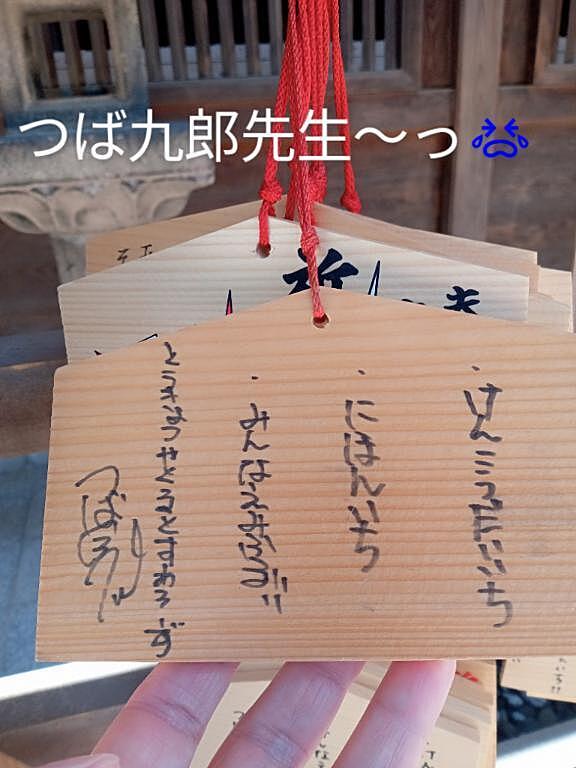 つば九郎先生〜っ😭
・けんこうだいいち
・にほんいち
・みんなえみふる!!
とうきょうやくるとすわろーず
つばくろう
祈